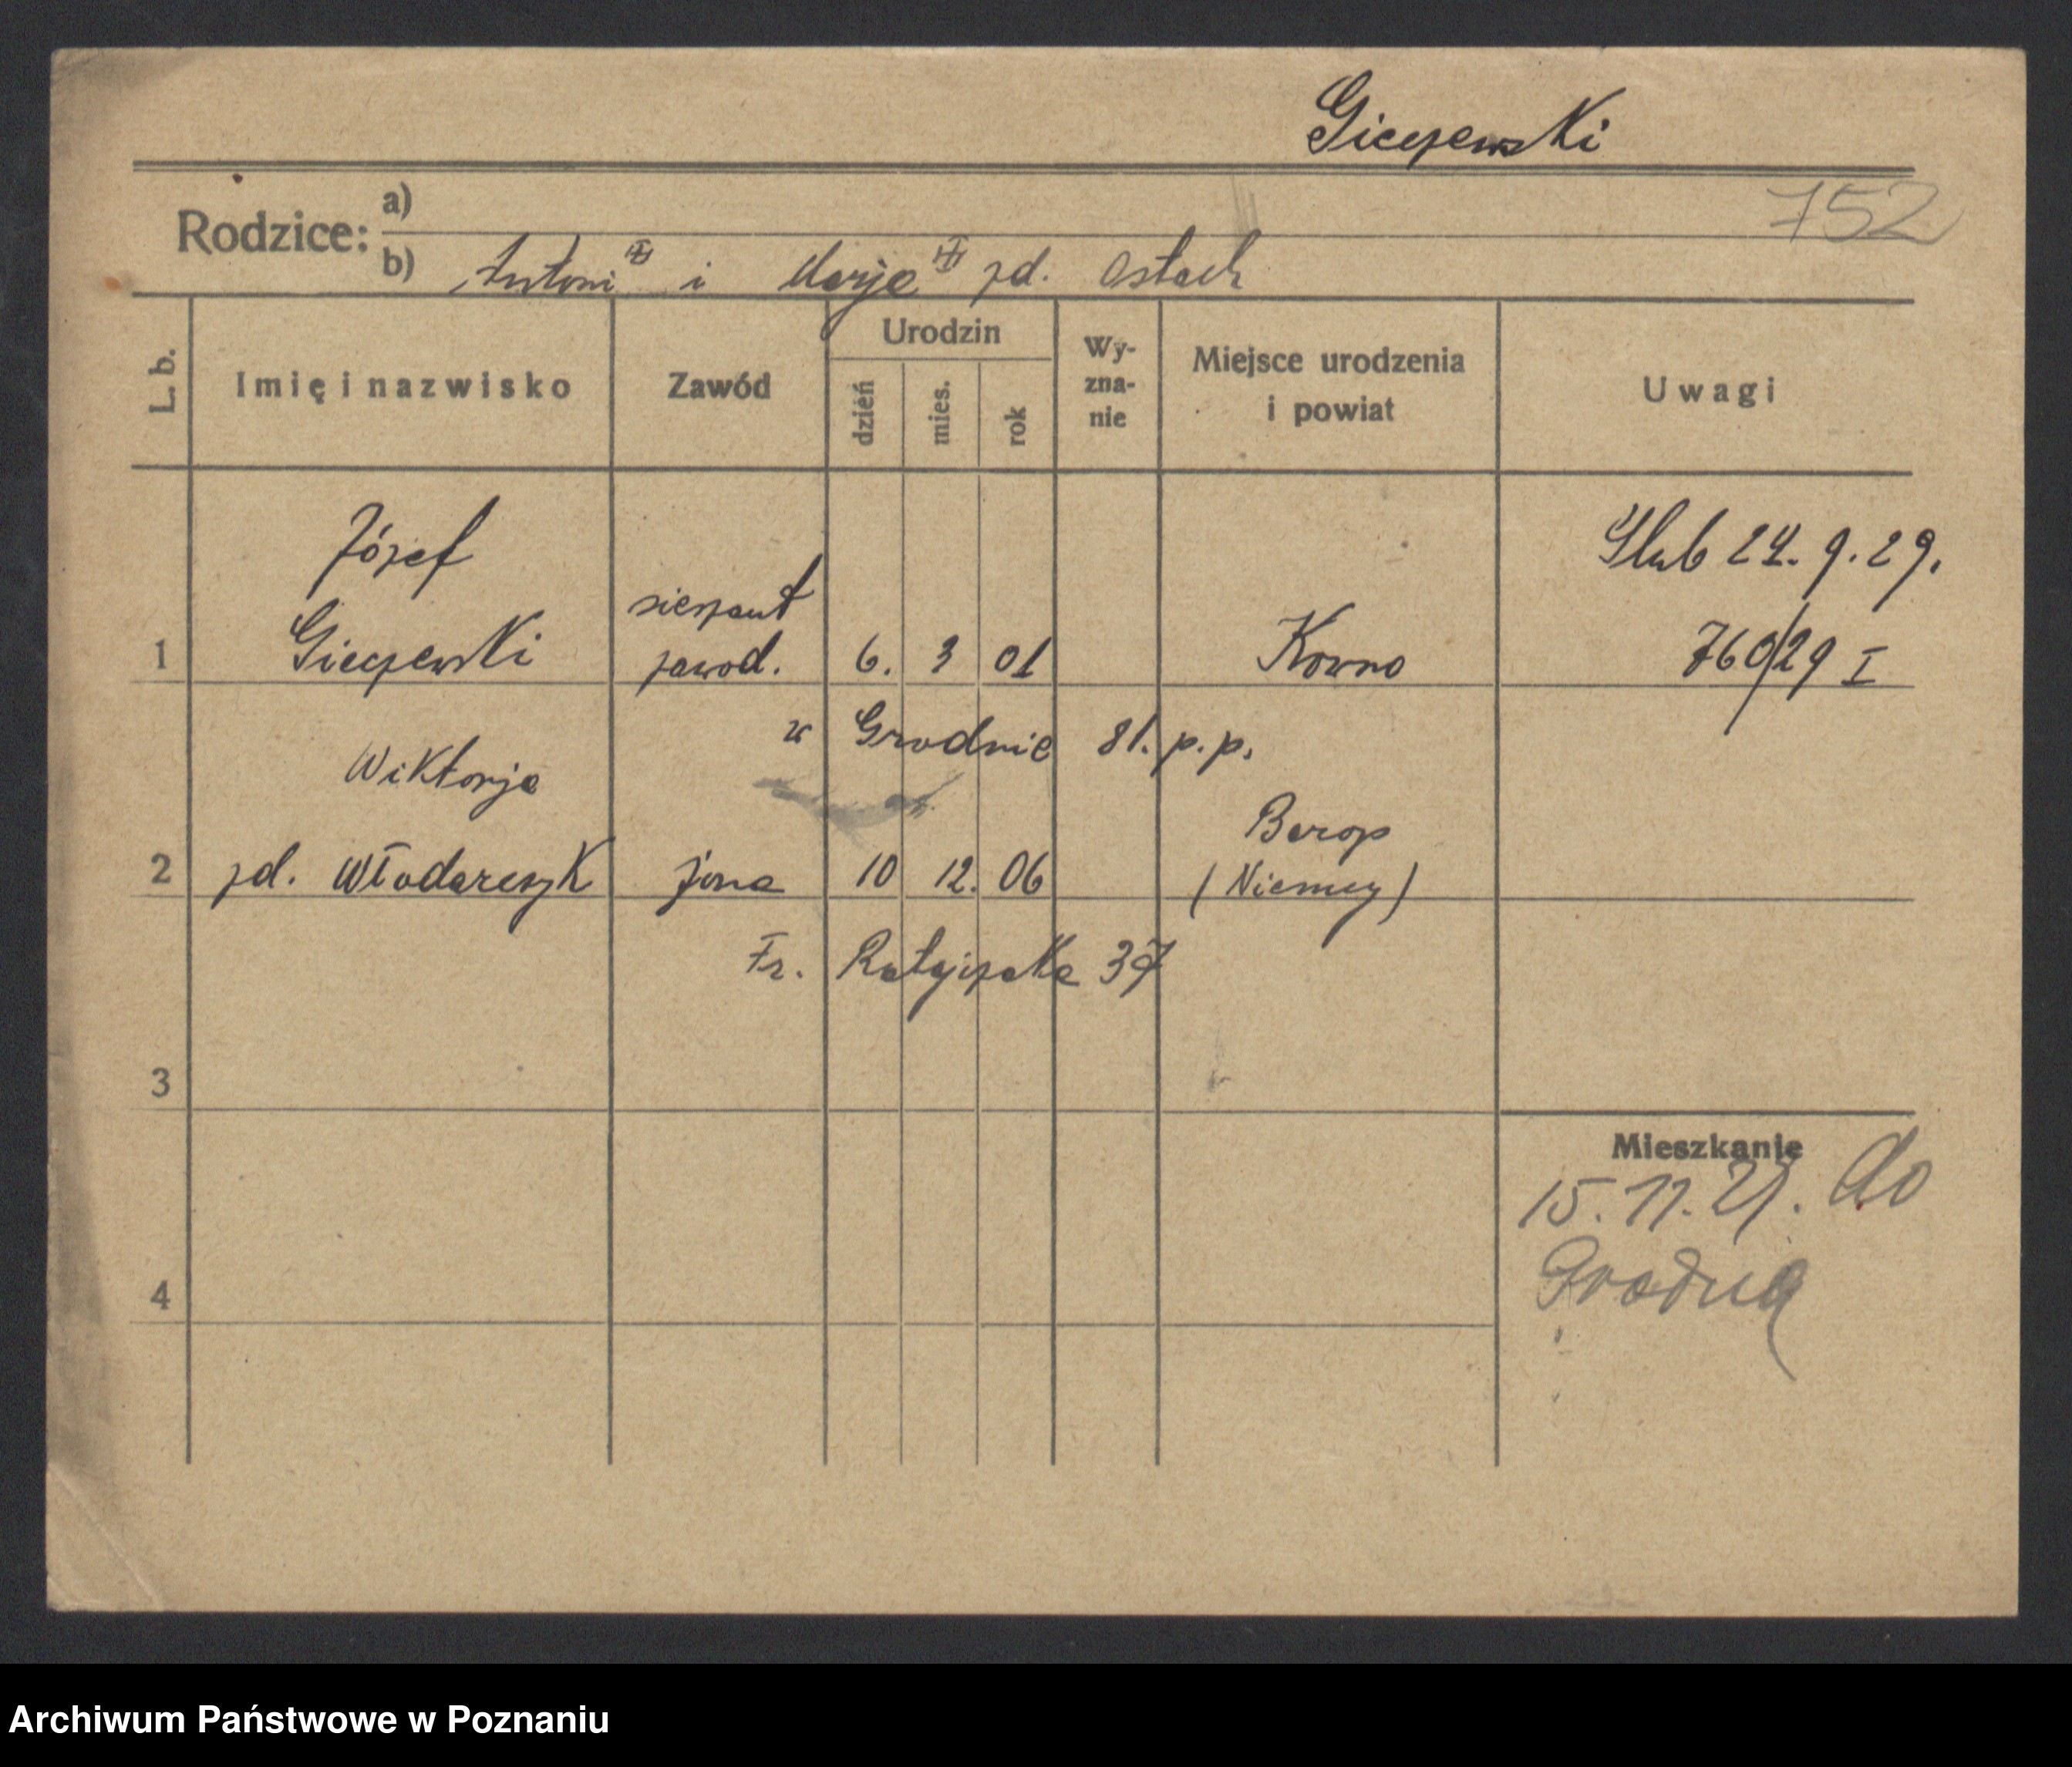 Giczewski
752
Rodzice: a)
b) Antoni i Marja zd. Ostach
L. b. Imię i nazwisko Zawód Urodzin dzień mies. rok Wy-zna-nie Miejsce urodzenia i powiat Uwagi
Józef Ślub 24. 9. 29.
sierżant
1 Giczewski zawod. 6. 3 01 Kowno 760/29 I
w Grodnie 81. p. p.
Wiktorja
Barop
2 zd. Włodarczyk żona 10 12. 06 (Niemcy)
Fr. Ratajczaka 37
3
Mieszkanie
15. 11. 29. do
4 Grodna
Archiwum Państwowe w Poznaniu